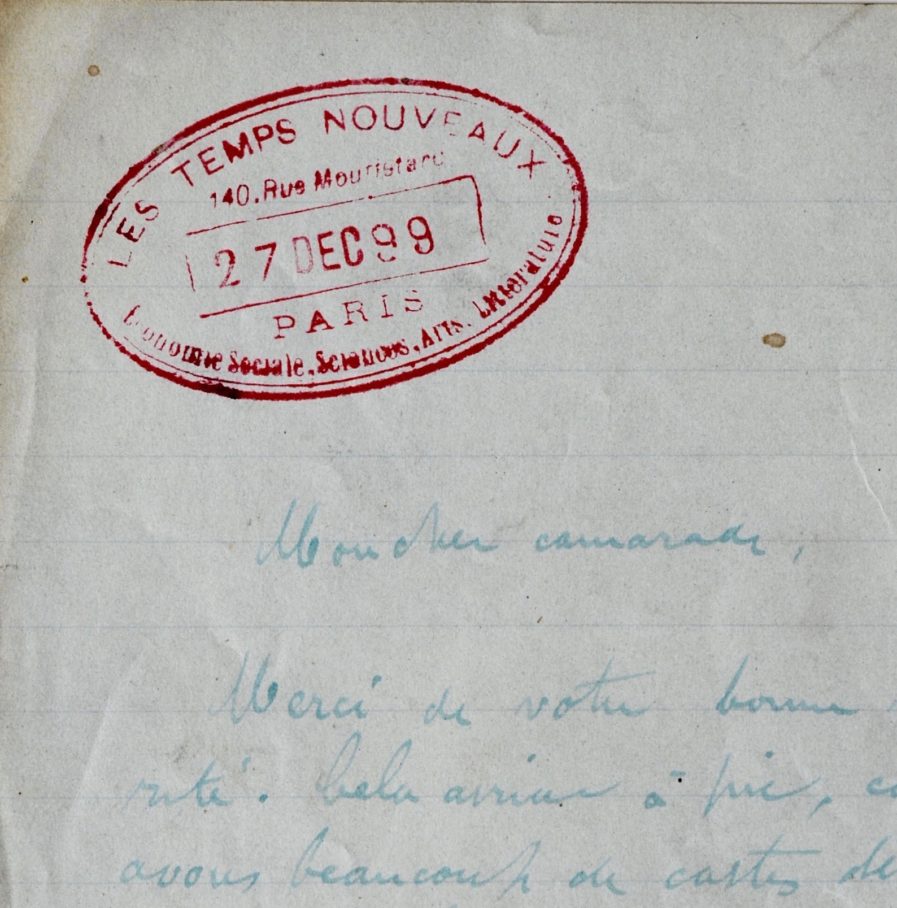 LES TEMPS NOUVEAUX
140, Rue Mouffetard
27 DEC 99
PARIS
Économie Sociale, Sciences, Arts, Littérature
Mon cher camarade,
Merci de votre bonne
rité. Cela arrive à pic,
avons beaucoup de cartes de